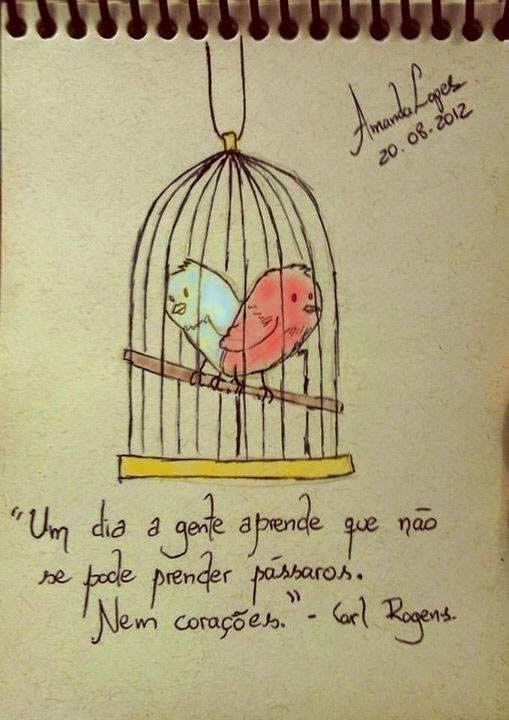 Amanda Lopes
20.08.2012
"Um dia a gente aprende que não
se pode prender pássaros.
Nem corações." - Carl Rogers.